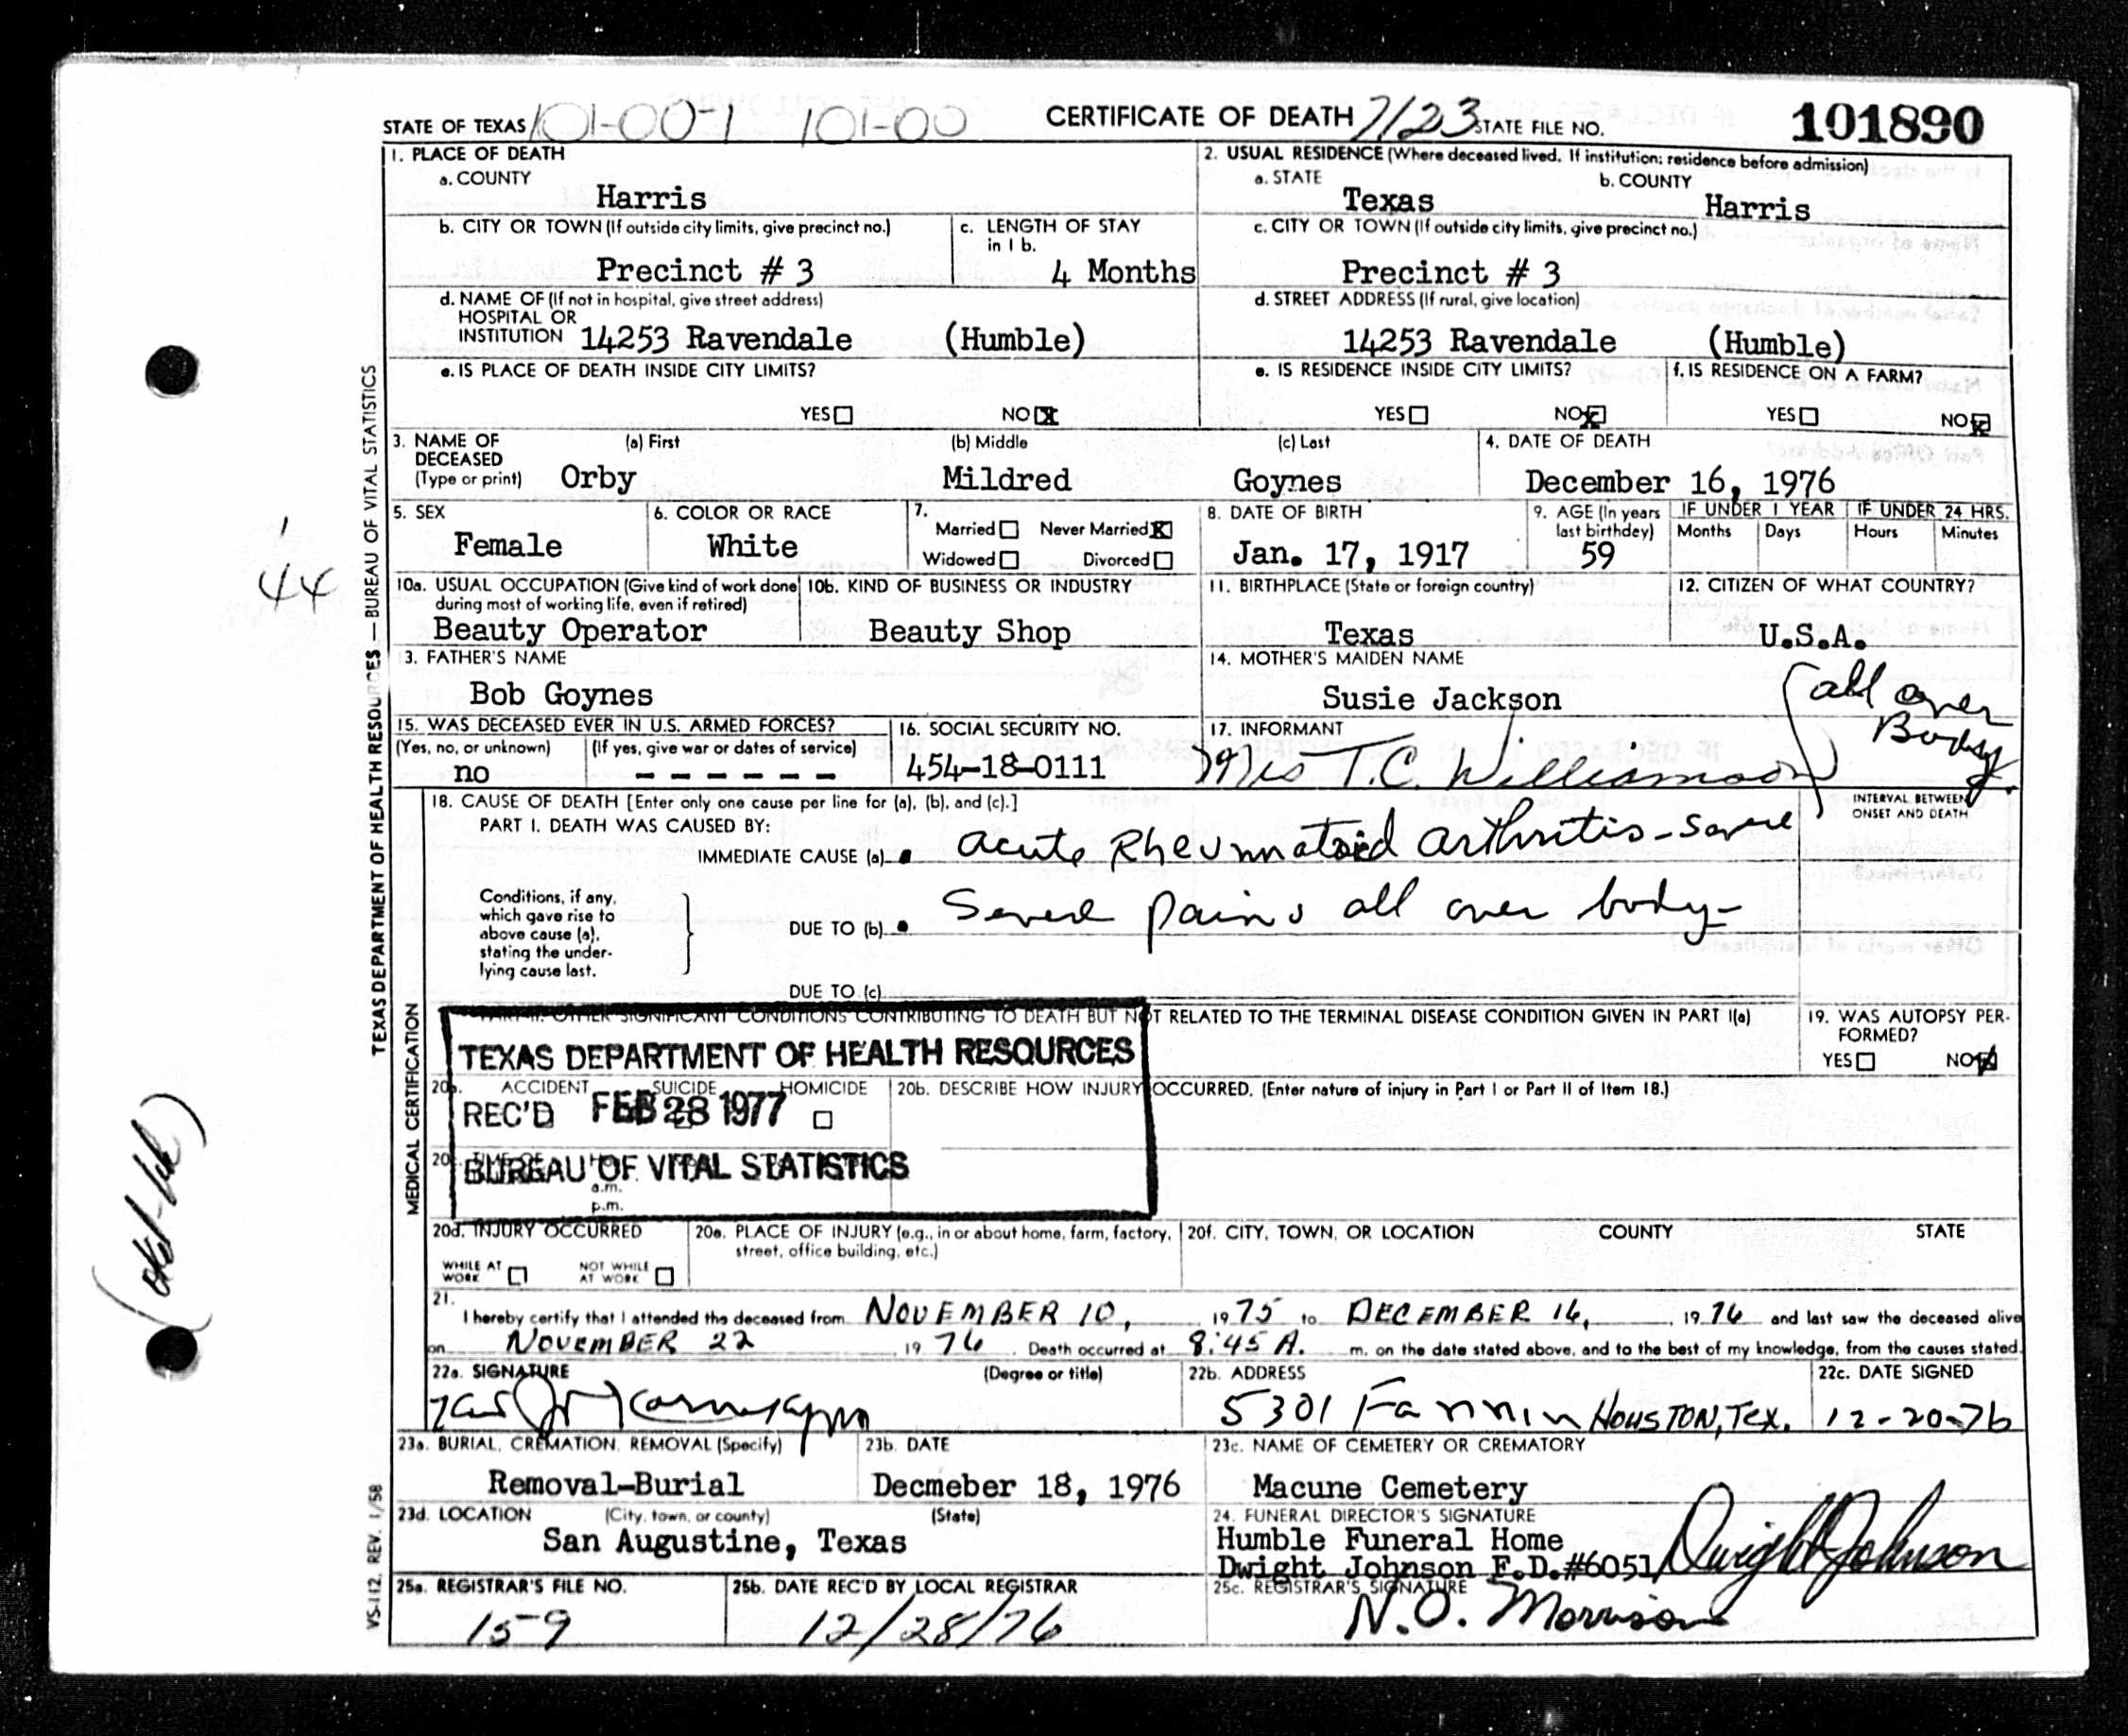 STATE OF TEXAS 101-00-1 101-00 CERTIFICATE OF DEATH 7123 STATE FILE NO. 101890
1. PLACE OF DEATH
a. COUNTY
Harris
2. USUAL RESIDENCE (Where deceased lived. If institution: residence before admission)
a. STATE
Texas
b. COUNTY
Harris
b. CITY OR TOWN (If outside city limits, give precinct no.)
Precinct # 3
c. LENGTH OF STAY
in 1 b.
4 Months
c. CITY OR TOWN (If outside city limits, give precinct no.)
Precinct # 3
d. NAME OF (If not in hospital, give street address)
HOSPITAL OR
INSTITUTION 14253 Ravendale (Humble)
d. STREET ADDRESS (If rural, give location)
14253 Ravendale (Humble)
e. IS PLACE OF DEATH INSIDE CITY LIMITS?
YES NO X
e. IS RESIDENCE INSIDE CITY LIMITS?
YES NO X
f. IS RESIDENCE ON A FARM?
YES NO X
3. NAME OF
DECEASED
(Type or print)
(a) First
Orby
(b) Middle
Mildred
(c) Last
Goynes
4. DATE OF DEATH
December 16, 1976
5. SEX
Female
6. COLOR OR RACE
White
7.
Married Never Married X
Widowed Divorced
8. DATE OF BIRTH
Jan. 17, 1917
9. AGE (In years
last birthday)
59
IF UNDER 1 YEAR
Months Days
IF UNDER 24 HRS.
Hours Minutes
10a. USUAL OCCUPATION (Give kind of work done
during most of working life, even if retired)
Beauty Operator
10b. KIND OF BUSINESS OR INDUSTRY
Beauty Shop
11. BIRTHPLACE (State or foreign country)
Texas
12. CITIZEN OF WHAT COUNTRY?
U.S.A.
3. FATHER'S NAME
Bob Goynes
14. MOTHER'S MAIDEN NAME
Susie Jackson
all over
Body
15. WAS DECEASED EVER IN U.S. ARMED FORCES?
(Yes, no, or unknown)
no
(If yes, give war or dates of service)
- - - - - -
16. SOCIAL SECURITY NO.
454-18-0111
17. INFORMANT
Mrs T.C. Williamson
18. CAUSE OF DEATH [Enter only one cause per line for (a), (b), and (c).]
PART I. DEATH WAS CAUSED BY:
IMMEDIATE CAUSE (a) acute Rheumatoid arthritis-
INTERVAL BETWEEN
ONSET AND DEATH
Conditions, if any,
which gave rise to
above cause (a),
stating the under-
lying cause last.
DUE TO (b) Severe pains all over body-
DUE TO (c)
PART II. OTHER SIGNIFICANT CONDITIONS CONTRIBUTING TO DEATH BUT NOT RELATED TO THE TERMINAL DISEASE CONDITION GIVEN IN PART I(a)
19. WAS AUTOPSY PER-
FORMED?
YES NO
TEXAS DEPARTMENT OF HEALTH RESOURCES
REC'D FEB 28 1977
BUREAU OF VITAL STATISTICS
20a. ACCIDENT SUICIDE HOMICIDE
20b. DESCRIBE HOW INJURY OCCURRED. (Enter nature of injury in Part I or Part II of Item 18.)
a.m.
p.m.
20d. INJURY OCCURRED
WHILE AT
WORK
NOT WHILE
AT WORK
20e. PLACE OF INJURY (e.g., in or about home, farm, factory,
street, office building, etc.)
20f. CITY, TOWN, OR LOCATION COUNTY STATE
21.
I hereby certify that I attended the deceased from NOVEMBER 10, 1975 to DECEMBER 16, 1976 and last saw the deceased alive
on NOVEMBER 22 1976. Death occurred at 8:45 A. m. on the date stated above, and to the best of my knowledge, from the causes stated.
22a. SIGNATURE (Degree or title)
22b. ADDRESS
5301 Fannin HOUSTON, TEX.
22c. DATE SIGNED
12-20-76
23a. BURIAL, CREMATION, REMOVAL (Specify)
Removal-Burial
23b. DATE
Decmeber 18, 1976
23c. NAME OF CEMETERY OR CREMATORY
Macune Cemetery
23d. LOCATION (City, town, or county) (State)
San Augustine, Texas
24. FUNERAL DIRECTOR'S SIGNATURE
Humble Funeral Home
Dwight Johnson F.D.#6051 Dwight Johnson
25a. REGISTRAR'S FILE NO.
159
25b. DATE REC'D BY LOCAL REGISTRAR
12/28/76
25c. REGISTRAR'S SIGNATURE
N.O. Morrison
TEXAS DEPARTMENT OF HEALTH RESOURCES — BUREAU OF VITAL STATISTICS
MEDICAL CERTIFICATION
VS-112, REV. 1/58
44